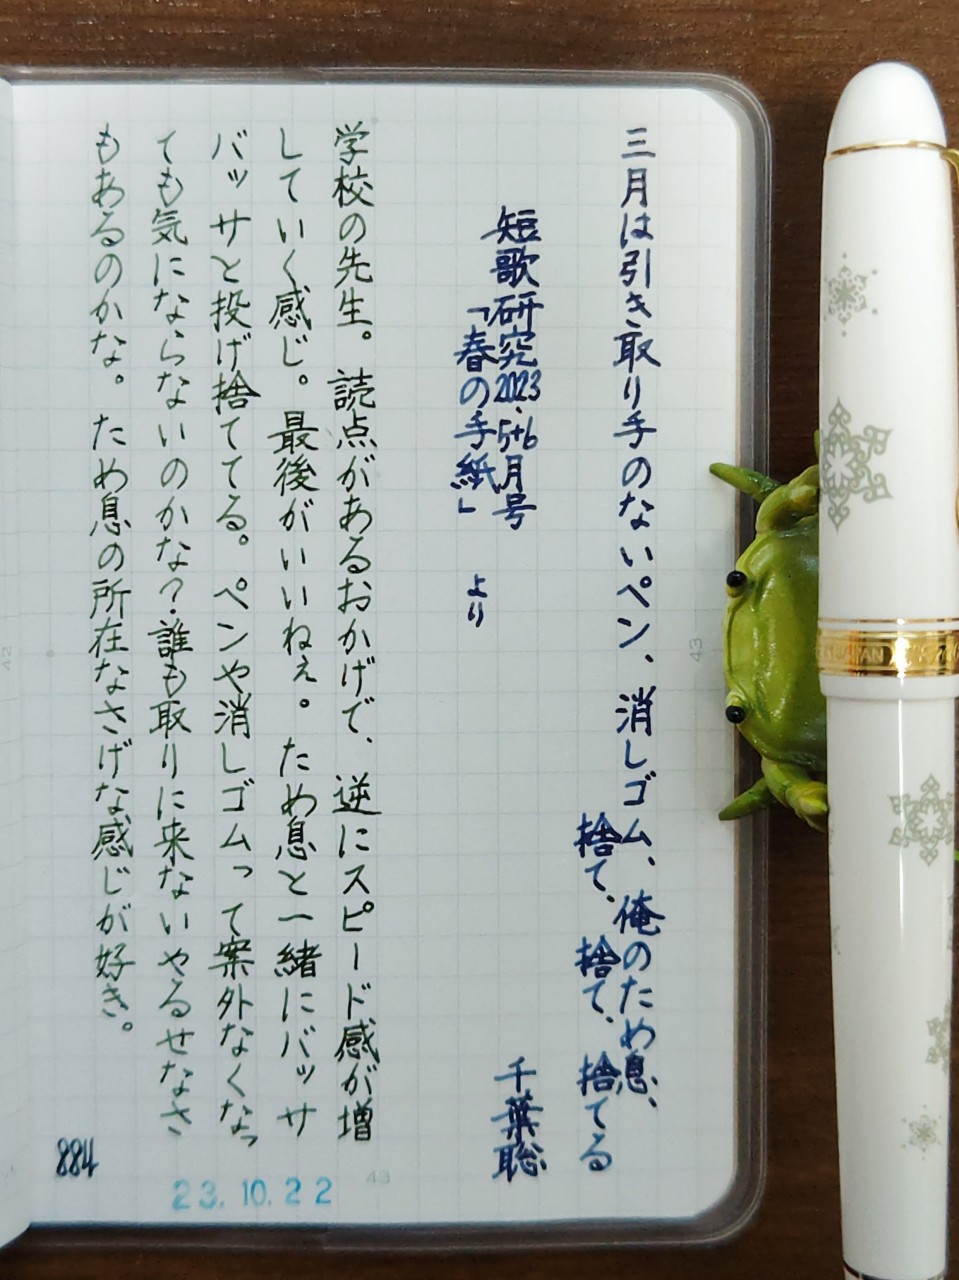 三月は引き取り手のないペン、消しゴム、俺のため息、
捨て、捨て、捨てる
短歌研究2023.5+6月号
「春の手紙」より
千葉聡
学校の先生。読点があるおかげで、逆にスピード感が増
していく感じ。最後がいいねぇ。ため息と一緒にバッサ
バッサと投げ捨ててる。ペンや消しゴムって案外なくなっ
ても気にならないのかな?誰も取りに来ないやるせなさ
もあるのかな。ため息の所在なさげな感じが好き。
884
23.10.22
43
43
42